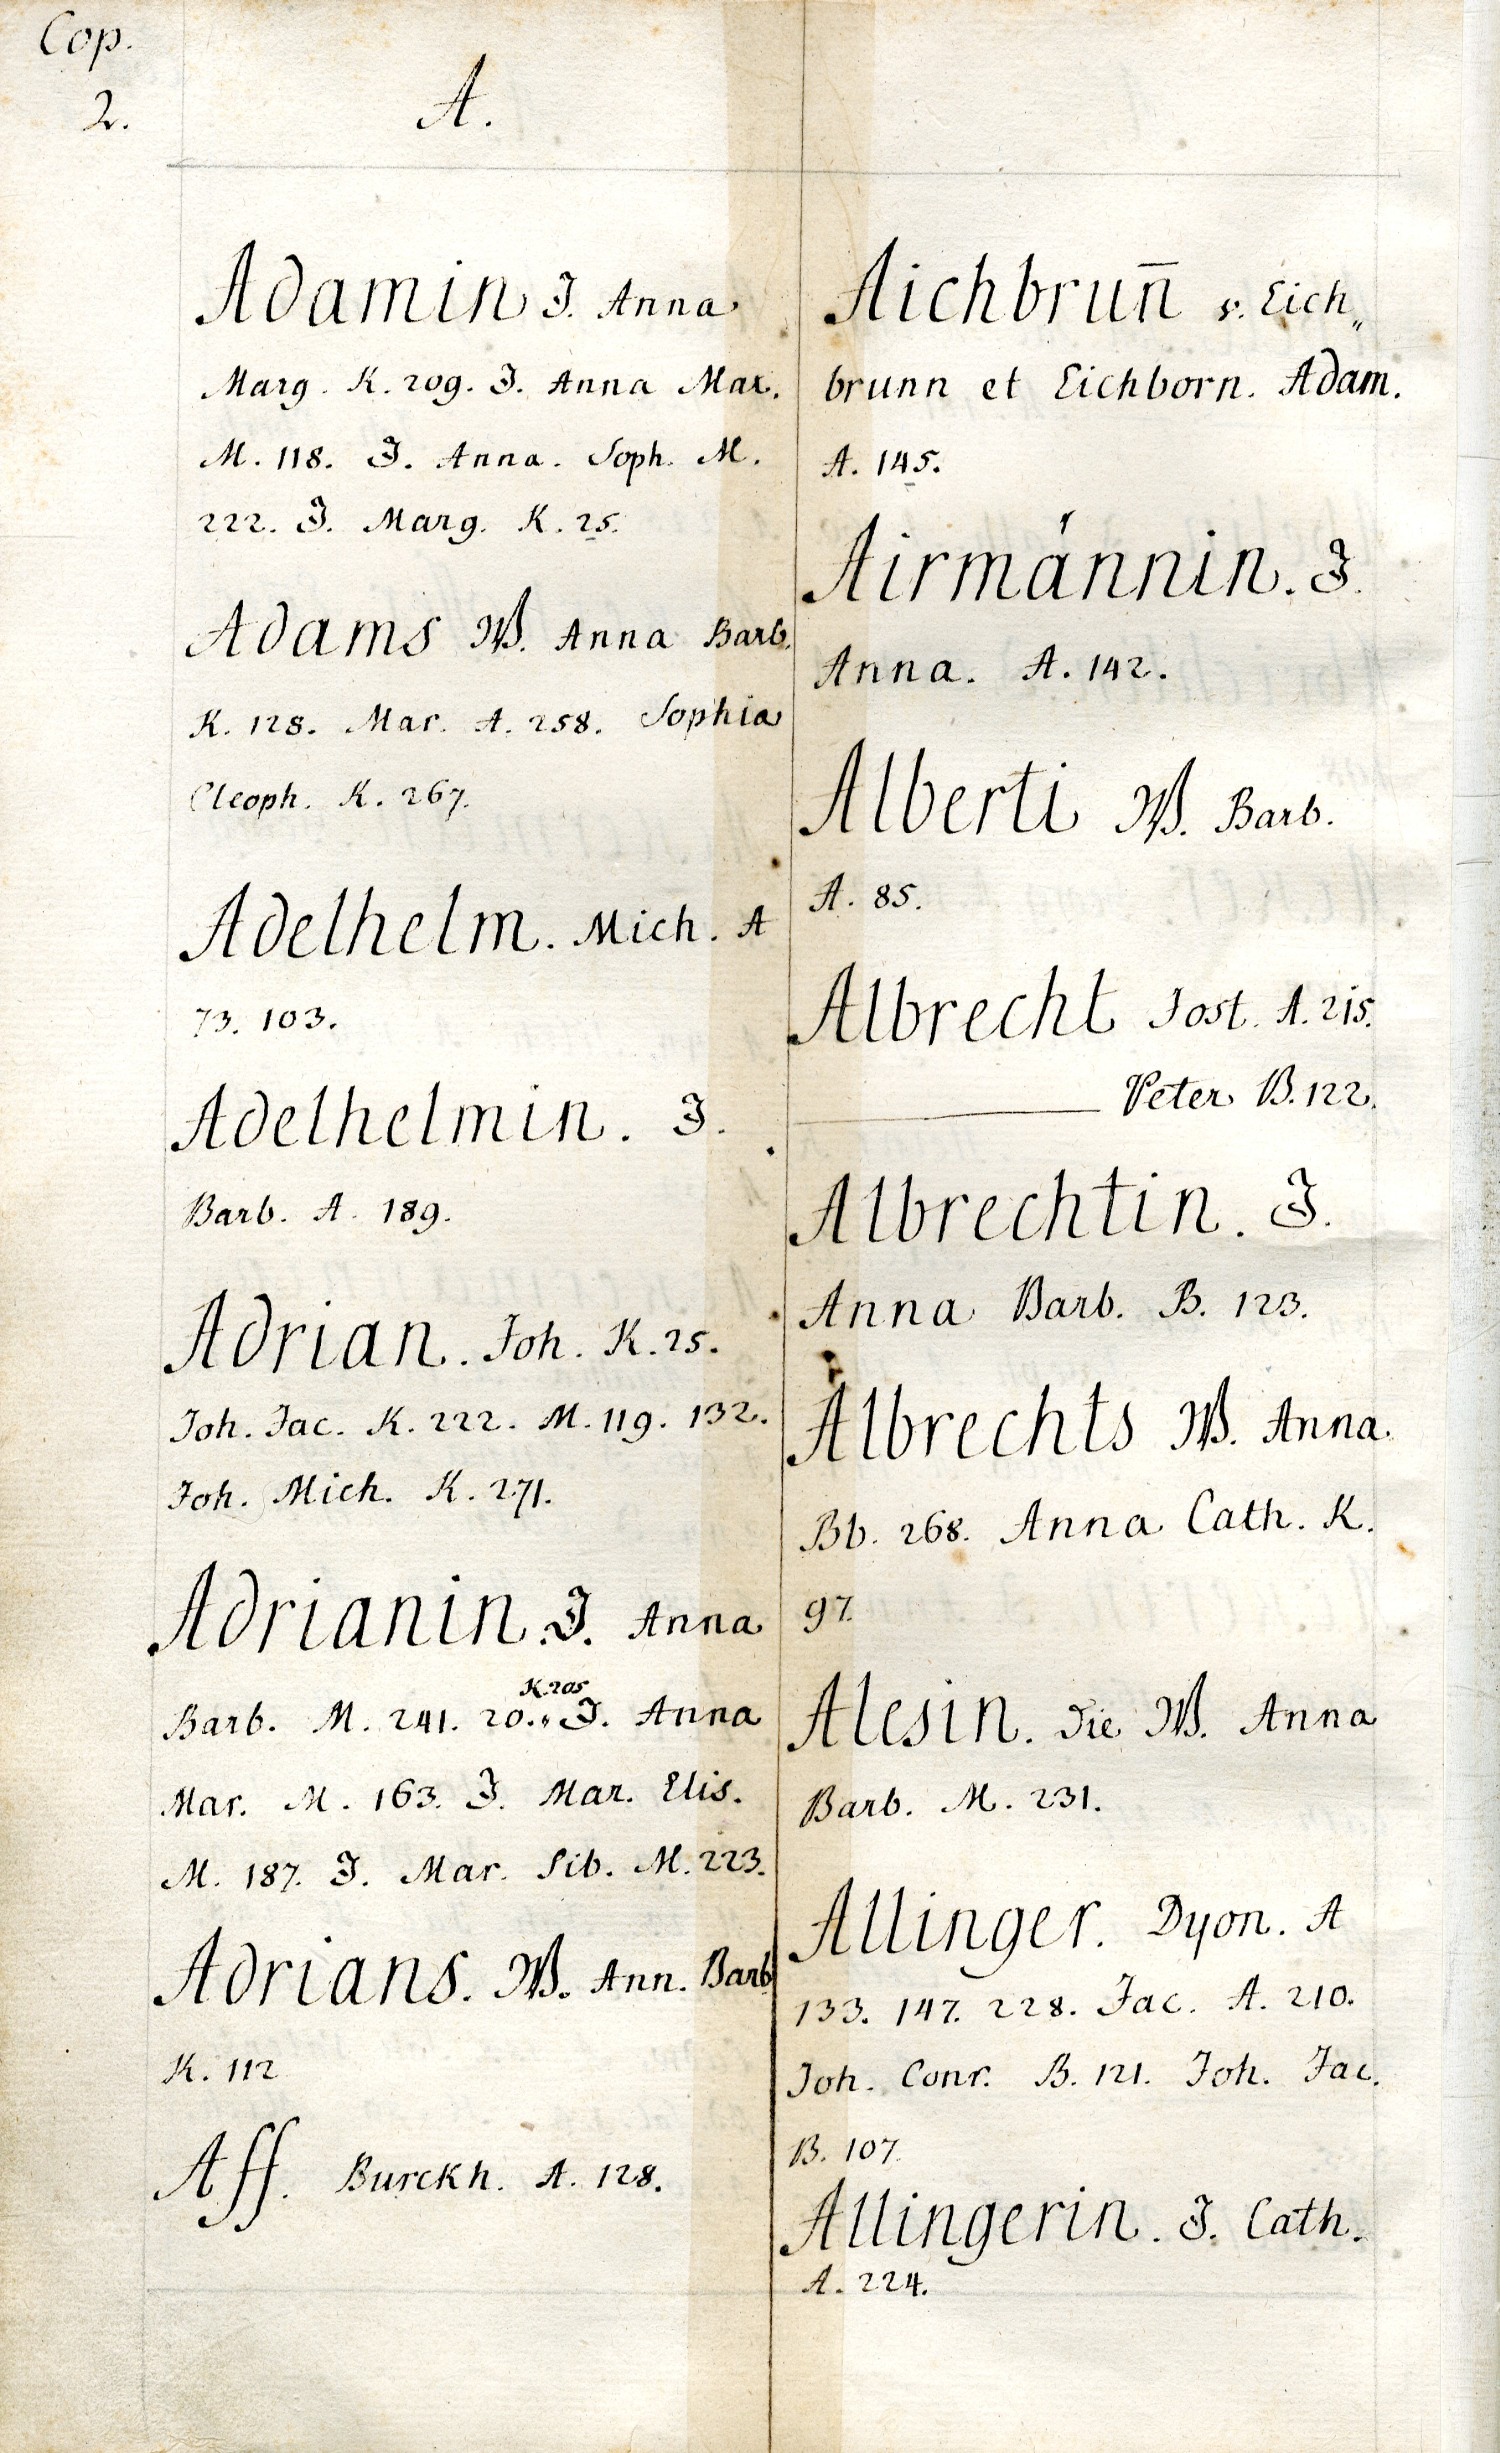 Cop.
2.
A.
Adamin J. Anna
Marg. K. 209. J. Anna Mar.
M. 118. J. Anna. Soph. M.
222. J. Marg. K. 25.
Adams W. Anna Barb.
K. 128. Mar. A. 258. Sophia
Cleoph. K. 267.
Adelhelm. Mich. A
73. 103.
Adelhelmin. J.
Barb. A. 189.
Adrian. Joh. K. 25.
Joh. Jac. K. 222. M. 119. 132.
Joh. Mich. K. 271.
Adrianin. J. Anna
K. 205
Barb. M. 241. 20. „ J. Anna
Mar. M. 163. J. Mar. Elis.
M. 187. J. Mar. Sib. M. 223.
Adrians. W. Ann. Barb
K. 112
Aff. Burckh. A. 128.
Aichbrun̄ v. Eich„
brunn et Eichborn. Adam.
A. 145.
Airmännin. J.
Anna. A. 142.
Alberti W. Barb.
A. 85.
Albrecht Jost. A. 215.
——— Peter B. 122.
Albrechtin. J.
Anna Barb. B. 123.
Albrechts W. Anna.
Bb. 268. Anna Cath. K.
97.
Alesin. Die W. Anna
Barb. M. 231.
Allinger. Dyon. A
133. 147. 228. Jac. A. 210.
Joh. Conr. B. 121. Joh. Jac.
B. 107.
Allingerin. J. Cath.
A. 224.